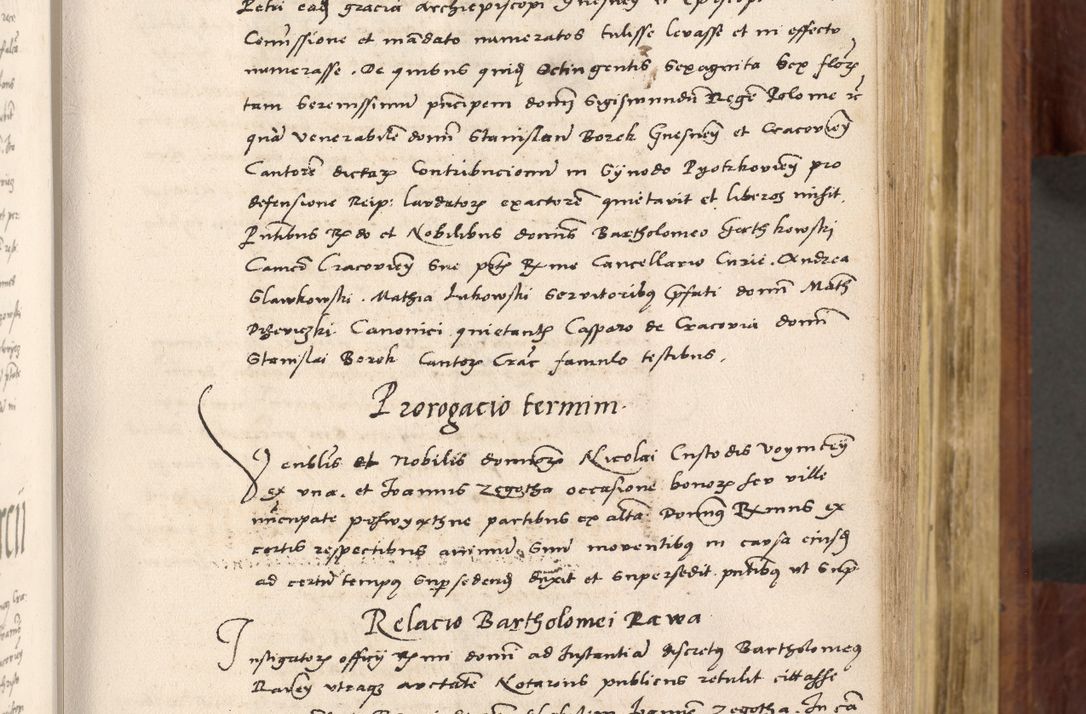 Petri eadem gracia Archiepiscopi Gnesnen et Episcopi
Comissione et mandato numeratos tulisse levasse et in effectu
numerasse. De quibus quidem Octingentis Sexaginta Sex flor
tam Serenissimu principem domn Sigismundu Rege Polonie etc
qua venerabile domn Stanislau Borek Gnesnen et Cracovien
Cantore dictar Contribucionu in Synodo Pyotrkovien pro
defensione Reip: laudator exactore quietavit et liberos misit.
Pntibus Rdo et Nobilibus domnis Bartholomeo Gorthkowski
Cracovien Sue Rme Cancellario Curie. Andrea
Slawkowski. Mathia Lukowski Servitoribus prefati domn Math
Canonici quietantis Casparo de Cracovia domn
Stanislai Borek Cantor Crac famulo testibus.
Prorogacio termini
Venblis et Nobilis domnor Nicolai Custodis Voynicen
ex una. et Joannis Zegotha occasione bonor seu ville
nuncupate partibus ex alta Domnus Rmus ex
certis respectibus animu Suu moventibus in causa eiusdem
ad certu tempus Supersedend duxit et Supersedit pntibus ut Supra
Relacio Bartholomei Rawa
Instigator officii Rmi domni ad Instantia discretus Bartholomeus
Raven utraque auctate Notarius publicus retulit citasse
Zegotha. In ca